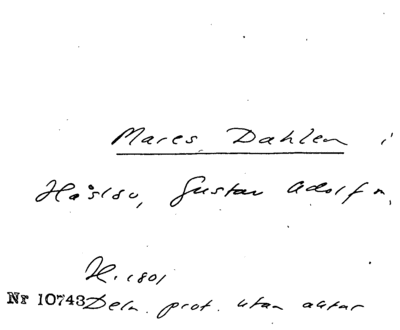 Mares Dahlen i
Haslov, Gustav Adolf n.
H. 1801
Nr 10743 Deln. prot. utan aktar